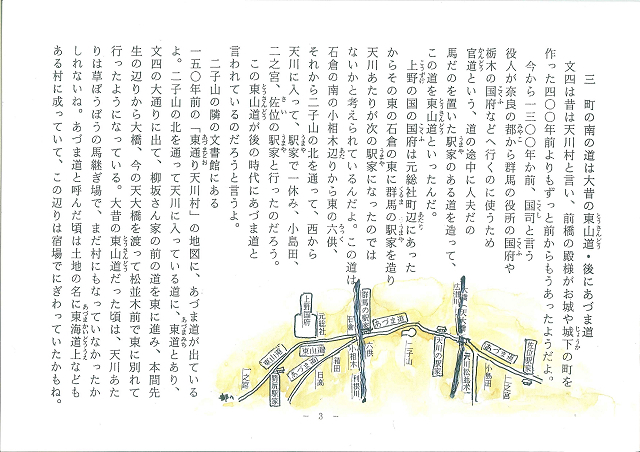 三　町の南の道は大昔の東山道・後にあづま道
文四は昔は天川村と言い、前橋の殿様がお城や城下の町を
作った四〇〇年前よりもずっと前からもうあったようだよ。
今から一三〇〇年か前、国司と言う
役人が奈良の都から群馬の役所の国府や
栃木の国府などへ行くのに使うため
官道という、道の途中に人夫だの
馬だのを置いた駅家のある道を造って、
この道を東山道といったんだ。
上野の国の国府は元総社町辺にあった
からその東の石倉の東に群馬の駅家を造り
天川あたりが次の駅家になったのでは
ないかと考えられているんだよ。この道は
石倉の南の小相木辺りから東の六供、
それから二子山の北を通って、西から
天川に入って、駅家で一休み、小島田、
二之宮、佐位の駅家と行ったのだろう。
この東山道が後の時代にあづま道と
言われているのだろうと言うよ。
二子山の隣の文書館にある
一五〇年前の「東通り天川村」の地図に、あづま道が出ている
よ。二子山の北を通って天川に入っている道に、東道とあり、
文四の大通りに出て、柳坂さん家の前の道を東に進み、本間先
生の辺りから大橋、今の天大橋を渡って松並木前で東に別れて
行ったようになっている。大昔の東山道だった頃は、天川あた
りは草ぼうぼうの馬継ぎ場で、まだ村にもなっていなかったか
しれないね。あづま道と呼んだ頃は土地の名に東海道上なども
ある村に成っていて、この辺りは宿場でにぎわっていたかもね。
上野国府
元総社
群馬の駅家
石倉
あづま道
六供
二子山
天川の駅家
天川松並木
あづま道
小島田
二之宮
佐位駅家
東山道
東山道
あづま道
小相木
利根川
箱田
日高
一之宮
都へ
－ 3 －